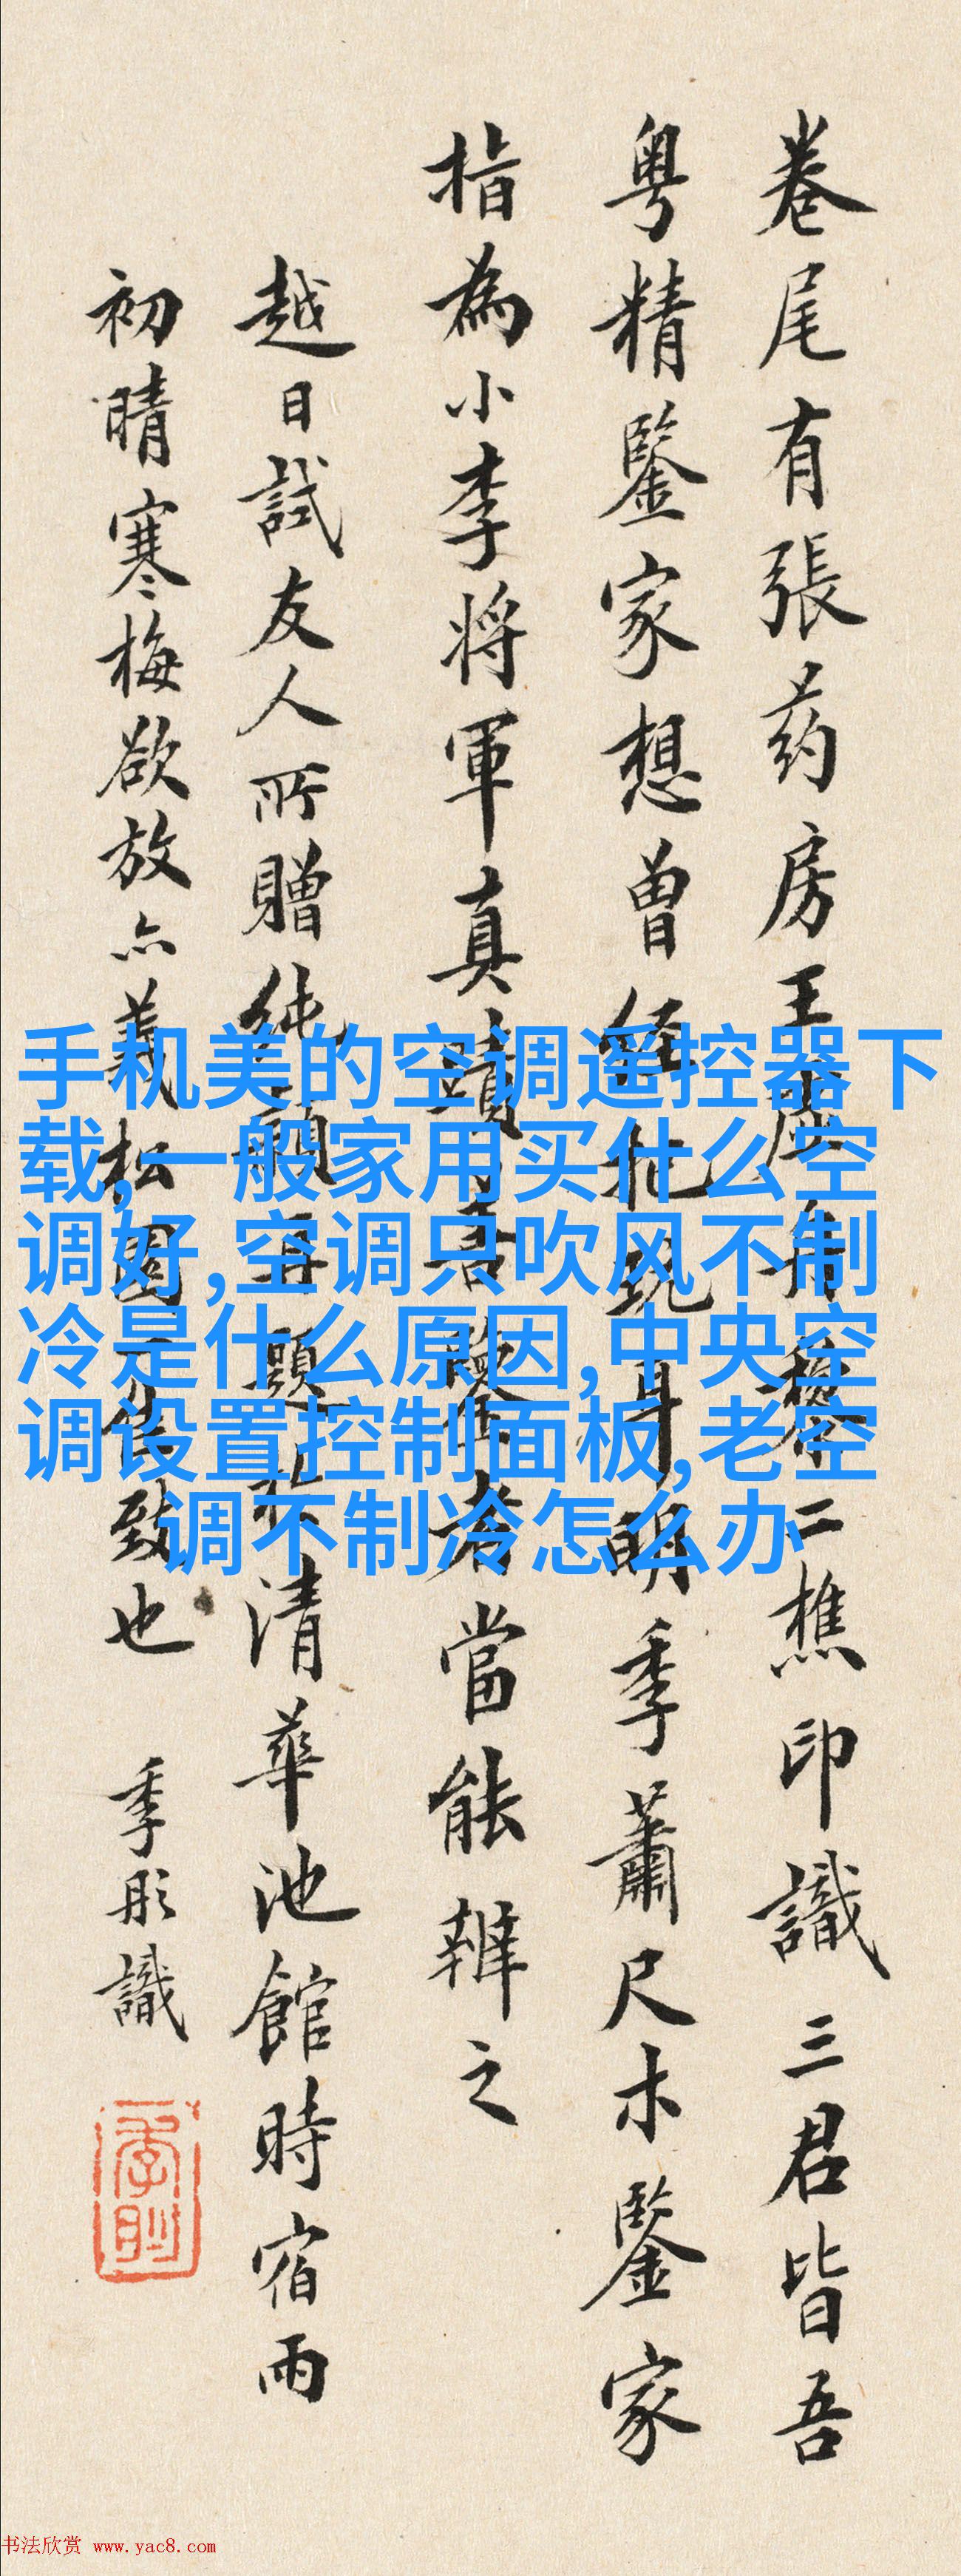 卷尾有張药房王 二樵印識三君皆吾
粤精鑒家想曾 明季蕭尺木鑒家
指為小李將軍真 當能辨之
越日試友人所贈純 題 清華池館時宿雨
初晴寒梅欲放亦 致也 季彤識
手机美的空调遥控器下
载,一般家用买什么空
调好,空调只吹风不制
冷是什么原因,中央空
调设置控制面板,老空
调不制冷怎么办
书法欣赏 www.yac8.com